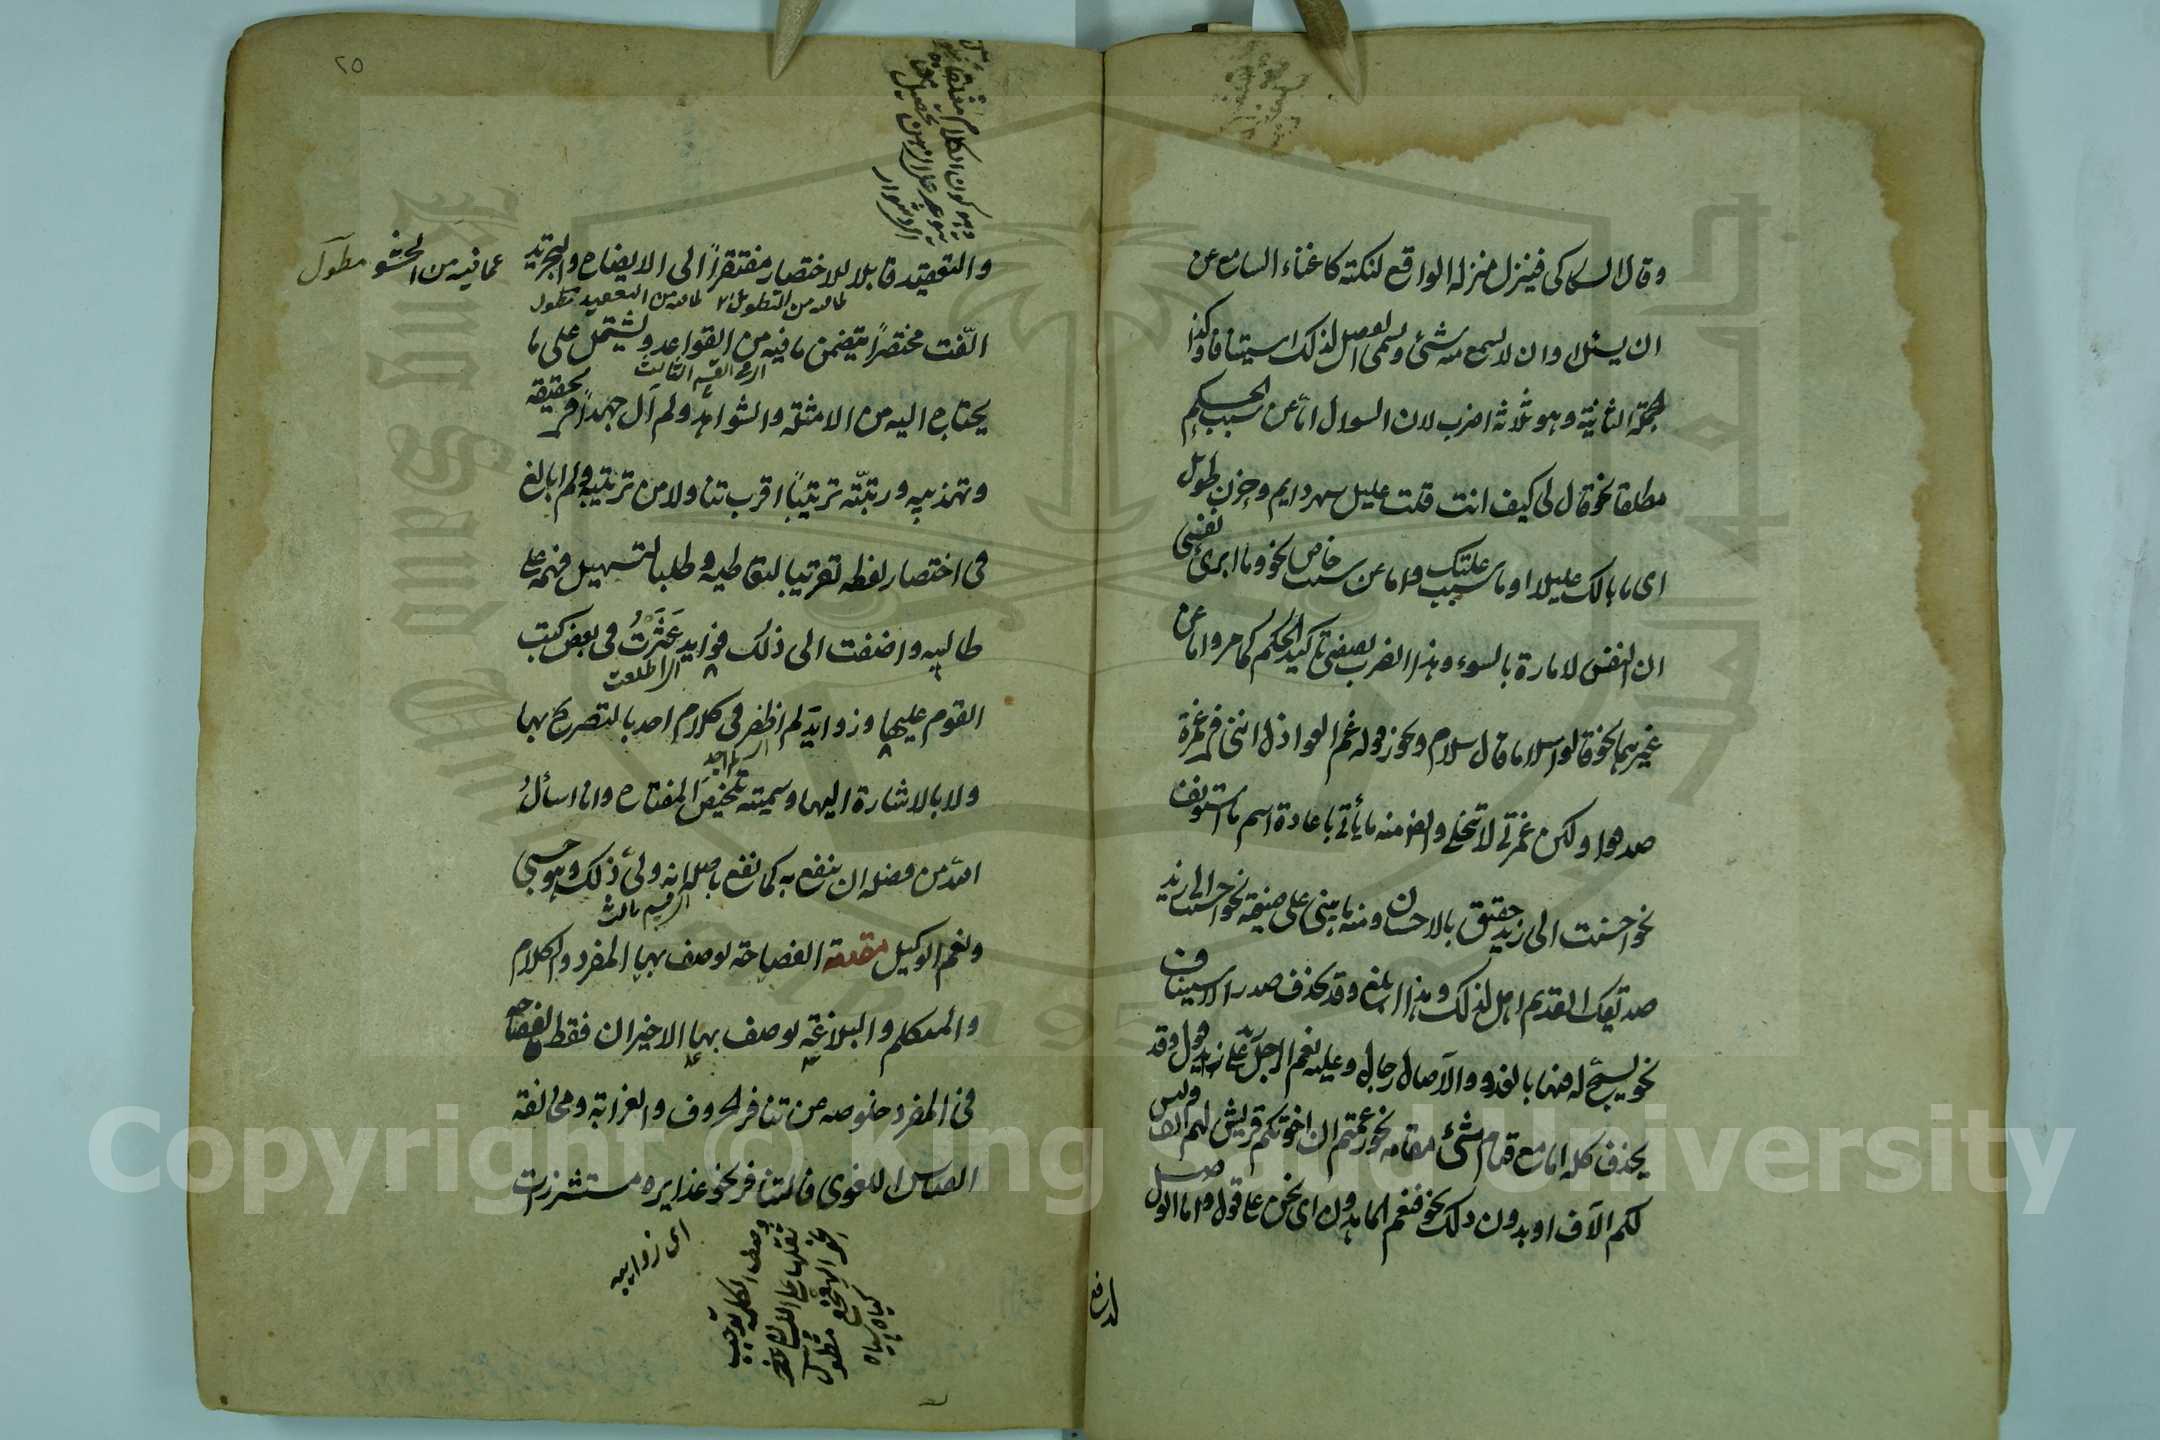 وقال السكاكى فينزل منزلة الواقع لنكتة كاغناء السامع عن
ان يسئل او ان لا يسمع منه شئ ويسمى الفصل لذلك استينافا وكذا
الجملة الثانية وهو ثلاثة اضرب لان السوال اما عن سبب الحكم
مطلقا نحو قال لى كيف انت قلت عليل سهر دايم وحزن طويل
اى ما بالك عليلا او ما سبب علتك واما عن سبب خاص نحو وما ابرئ نفسى
ان النفس لامارة بالسوء وهذا الضرب يقتضى تاكيد الحكم كما مر واما عن
غيرهما نحو قالوا سلاما قال سلام ونحو زعم العواذل اننى فى غمرة
صدقوا ولكن غمرتى لا تنجلى وايضا منه ما يأتى باعادة اسم ما استونف
نحو احسنت الى زيد زيد حقيق بالاحسان ومنه ما يبنى على صفته نحو احسنت الى زيد
صديقك القديم اهل لذلك وهذا ابلغ وقد يحذف صدر الاستيناف
نحو يسبح له فيها بالغدو والآصال رجال وعليه نعم الرجل زيد على قول وقد
يحذف كله اما مع قيام شئ مقامه نحو زعمتم ان اخوتكم قريش لهم الف وليس
لكم الآف او بدون ذلك نحو فنعم الماهدون اى نحن على قول واما الوصل
لدفع
٢٥
والتعقيد قابلا للاختصار مفتقرا الى الايضاح والتجريد عما فيه من الحشو مطول
الّفت مختصرا يتضمن ما فيه من القواعد ويشتمل على ما
اى القسم الثالث
يحتاج اليه من الامثلة والشواهد ولم آل جهدا فى تحقيقه
وتهذيبه ورتبته ترتيبا اقرب تناولا من ترتيبه ولم ابالغ
فى اختصار لفظه تقريبا لتعاطيه وطلبا لتسهيل فهمه على
طالبيه واضفت الى ذلك فوايد عَثَرتُ فى بعض كتب
اى اطلعت
القوم عليها وزوايد لم اظفر فى كلام احد بالتصريح بها
اى لم اجد
ولا بالاشارة اليها وسميته تلخيص المفتاح وانا اسألُ
الله من فضله ان ينفع به كما نفع باصله انه ولى ذلك وهو حسبى
ونعم الوكيل مقدمة الفصاحة يوصف بها المفرد والكلام
والمتكلم والبلاغة يوصف بها الاخيران فقط فالفصاحة
فى المفرد خلوصه من تنافر الحروف والغرابة ومخالفة
القياس اللغوى فالتنافر نحو غدايره مستشزرات
اى ذوايبه
Copyright © King Saud University